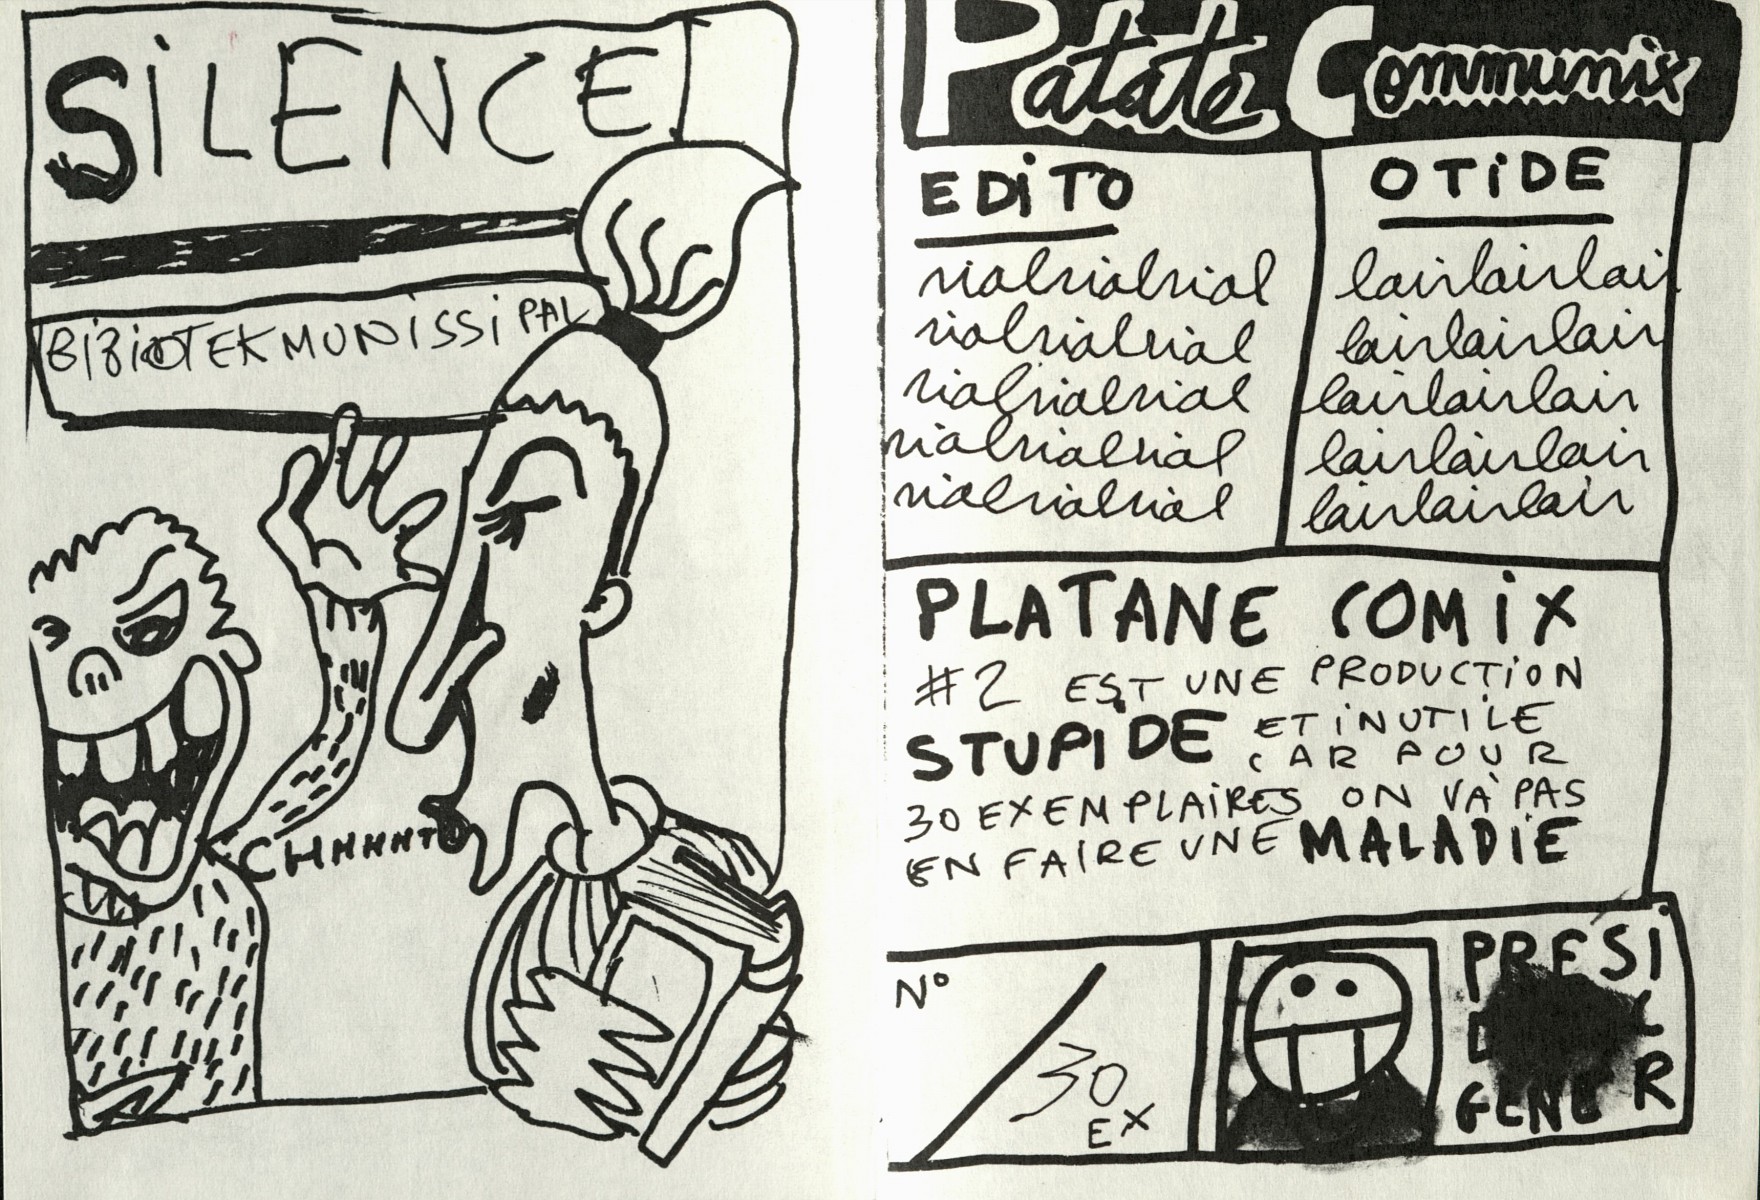 SILENCE
BIBIOTEKMUNISSIPAL
CHHHHT
Patate Communix
EDITO
rialrialrial
rialrialrial
rialrialrial
rialrialrial
rialrialrial
OTIDE
lairlairlair
lairlairlair
lairlairlair
lairlairlair
lairlairlair
PLATANE COMIX
#2 EST UNE PRODUCTION
STUPIDE ET INUTILE
CAR POUR
30 EXEMPLAIRES ON VA PAS
EN FAIRE UNE MALADIE
N°
30
EX
PRESI
GENER